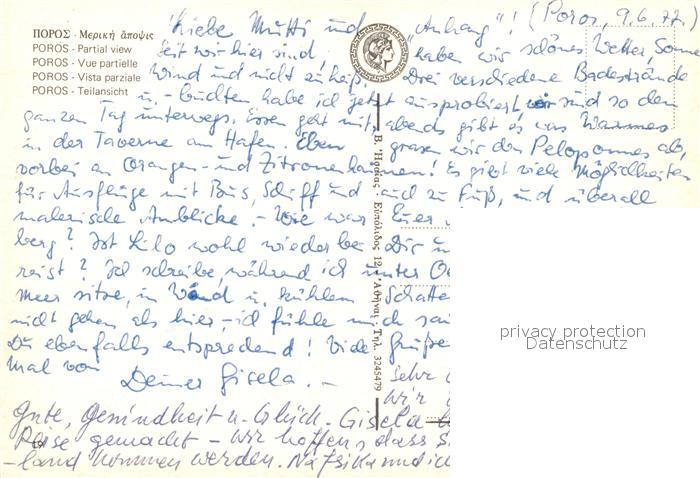 ΠΟΡΟΣ - Μερική ἄποψις
POROS - Partial view
POROS - Vue partielle
POROS - Vista parziale
POROS - Teilansicht
Β. Ἡφαῖος - Εὐπόλιδος 12, Ἀθῆναι - Τηλ. 3245479
(Poros, 9.6.77.)
Liebe Mutti und „Anhang"!
Seit wir hier sind, haben wir schönes Wetter, Sonne
Wind und nicht zu heiß. Drei verschiedene Badestrände
u. -buchten habe ich jetzt ausprobiert, wir sind so den
ganzen Tag unterwegs. Essen geht mit, abends gibt es was Warmes
in der Taverne am Hafen. Eben grasen wir den Peloponnes ab,
vorbei an Orangen- und Zitronenhainen! Es gibt viele Möglichkeiten
für Ausflüge mit Bus, Schiff und auch zu Fuß, und überall
malerische Anblicke. - Wie war Euer
berg? Ist Lilo wohl wieder bei Dir u
reist? Ich schreibe, während ich unter
Meer sitze, in Wind u. kühlem Schatte
nicht gehen als hier - ich fühle mich
Du ebenfalls entsprechend! Viele Grüße
mal von Deiner Gisela. -
Sehr
wir
Gute, Gesundheit u. Glück. Gisela
Reise gemacht - wir hoffen, dass
-land kommen werden. Nafsika und ich
privacy protection
Datenschutz